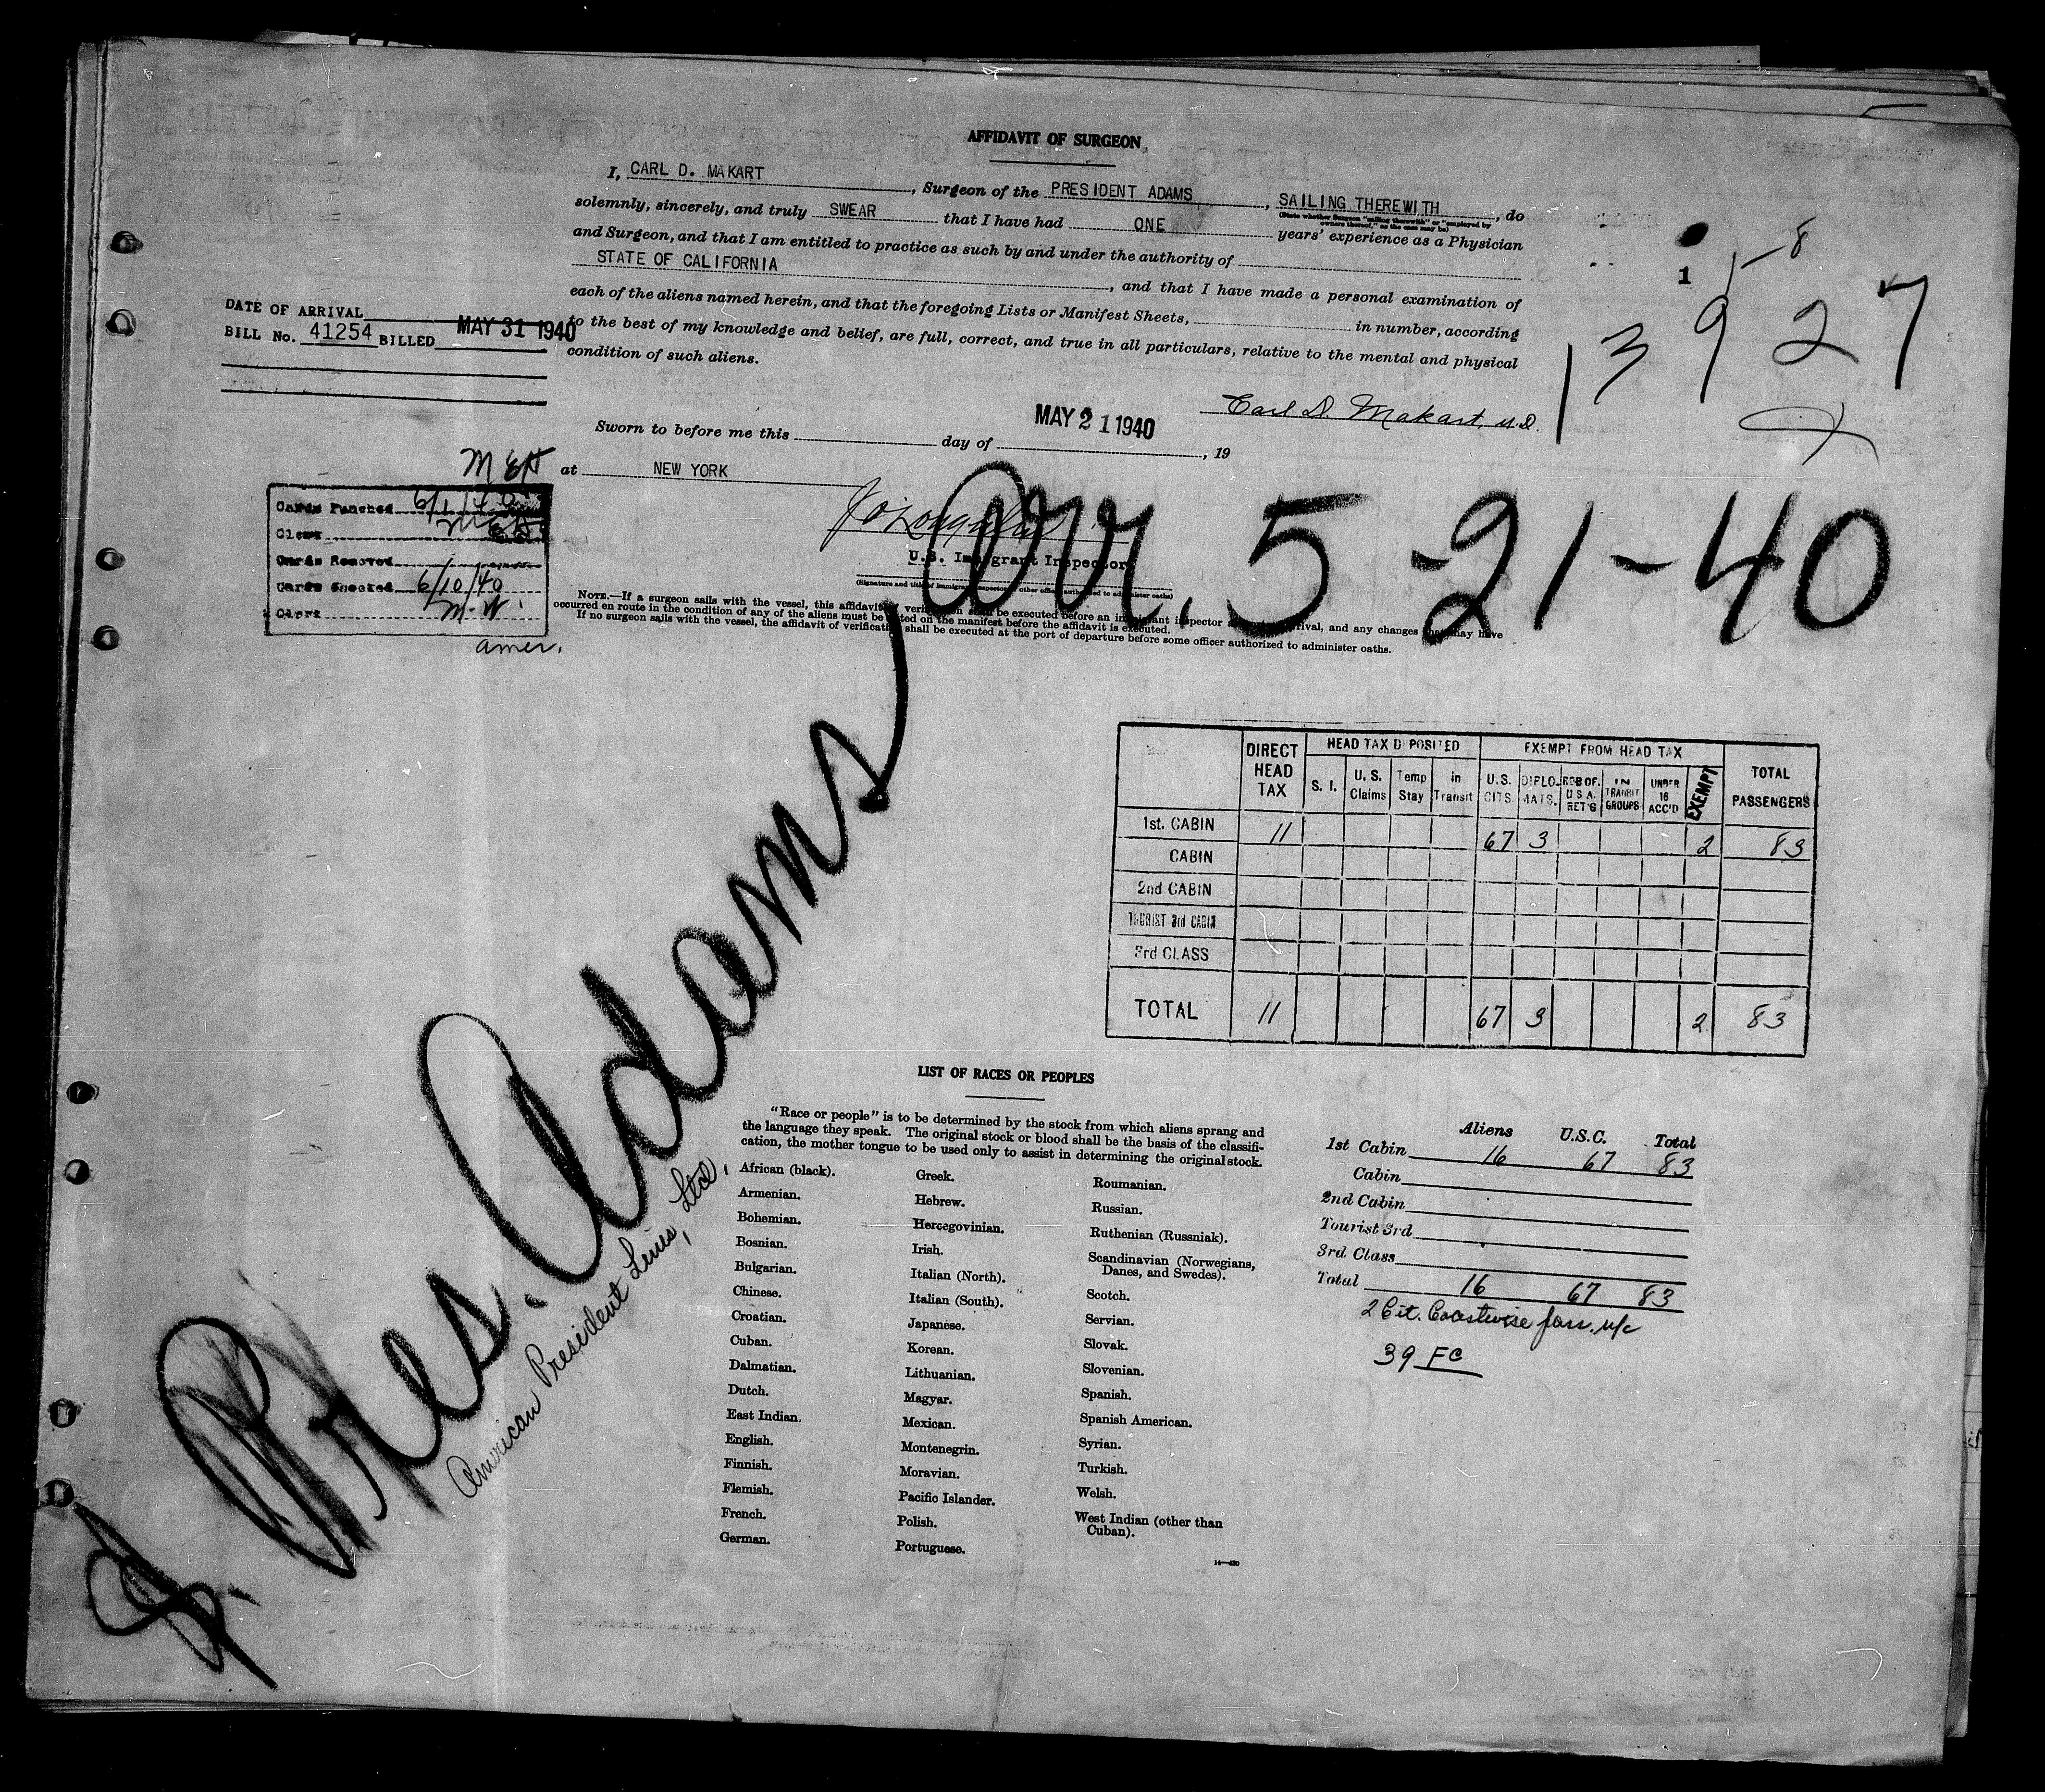 AFFIDAVIT OF SURGEON
I, CARL D. MAKART, Surgeon of the PRESIDENT ADAMS, SAILING THEREWITH, do
(State whether Surgeon "sailing therewith" or "employed by owners thereof," as the case may be)
solemnly, sincerely, and truly SWEAR that I have had ONE years' experience as a Physician
and Surgeon, and that I am entitled to practice as such by and under the authority of
STATE OF CALIFORNIA, and that I have made a personal examination of
each of the aliens named herein, and that the foregoing Lists or Manifest Sheets, in number, according
to the best of my knowledge and belief, are full, correct, and true in all particulars, relative to the mental and physical
condition of such aliens.
8
1
13927
DATE OF ARRIVAL
BILL No. 41254 BILLED MAY 31 1940
Carl D. Makart, M.D.
Sworn to before me this day of MAY 21 1940, 19
at NEW YORK
U.S. Immigrant Inspector
(Signature and title of immigrant inspector or other officer authorized to administer oaths)
MEH
Cards Punched 6/1/40
Clerk MEH
Cards Removed
Cards Checked 6/10/40
Clerk M.W.
amer.
Arr. 5-21-40
NOTE.—If a surgeon sails with the vessel, this affidavit of verification shall be executed before an immigrant inspector at port of arrival, and any changes that may have
occurred en route in the condition of any of the aliens must be noted on the manifest before the affidavit is executed.
If no surgeon sails with the vessel, the affidavit of verification shall be executed at the port of departure before some officer authorized to administer oaths.
DIRECT HEAD TAX
HEAD TAX DEPOSITED
EXEMPT FROM HEAD TAX
TOTAL PASSENGERS
S. I. U. S. Claims Temp Stay In Transit U.S. CITS. DIPLO-MATS. RES OF. U S A. RET'G IN TRANSIT GROUPS UNDER 16 ACC'D EXEMPT
1st. CABIN 11 67 3 2 83
CABIN
2nd CABIN
TOURIST 3rd CABIN
3rd CLASS
TOTAL 11 67 3 2 83
S. Pres. Adams
American President Lines, Ltd.
LIST OF RACES OR PEOPLES
"Race or people" is to be determined by the stock from which aliens sprang and
the language they speak. The original stock or blood shall be the basis of the classifi-
cation, the mother tongue to be used only to assist in determining the original stock.
African (black).
Armenian.
Bohemian.
Bosnian.
Bulgarian.
Chinese.
Croatian.
Cuban.
Dalmatian.
Dutch.
East Indian.
English.
Finnish.
Flemish.
French.
German.
Greek.
Hebrew.
Hercegovinian.
Irish.
Italian (North).
Italian (South).
Japanese.
Korean.
Lithuanian.
Magyar.
Mexican.
Montenegrin.
Moravian.
Pacific Islander.
Polish.
Portuguese.
Roumanian.
Russian.
Ruthenian (Russniak).
Scandinavian (Norwegians,
Danes, and Swedes).
Scotch.
Servian.
Slovak.
Slovenian.
Spanish.
Spanish American.
Syrian.
Turkish.
Welsh.
West Indian (other than
Cuban).
Aliens U.S.C. Total
1st Cabin 16 67 83
Cabin
2nd Cabin
Tourist 3rd
3rd Class
Total 16 67 83
2 Cit. Coastwise
39 FC